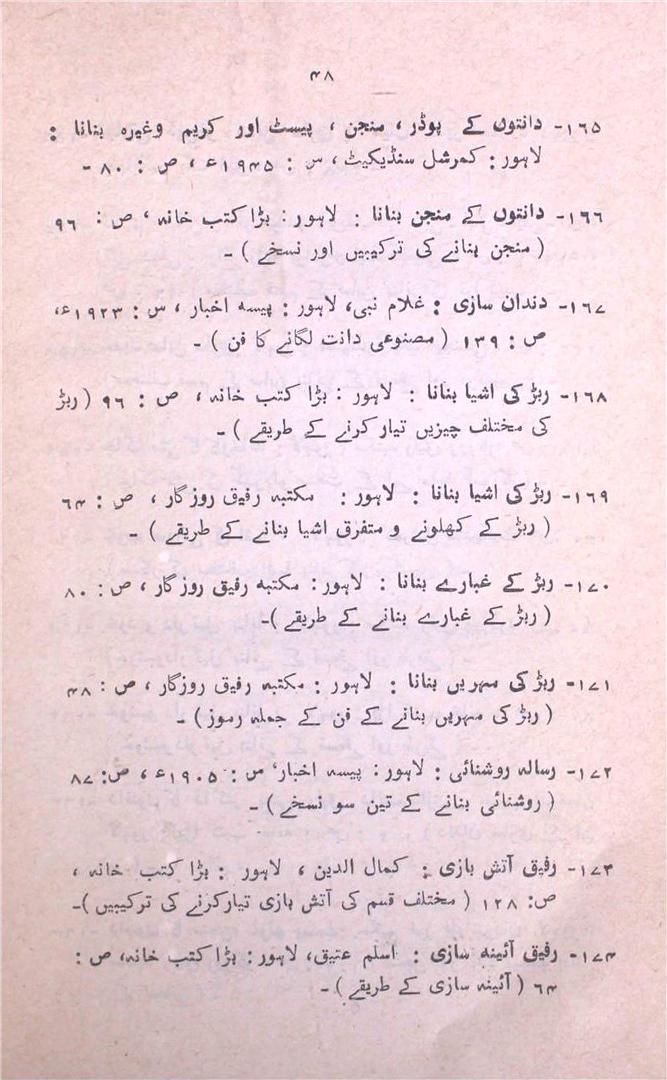 ۴۸
۱۶۵- دانتوں کے پوڈر ، منجن ، پیسٹ اور کریم وغیرہ بنانا :
لاہور : کمرشل سنڈیکیٹ ، س : ۱۹۴۵ء ، ص : ۸۰ -
۱۶۶- دانتوں کے منجن بنانا : لاہور : بڑا کتب خانہ ، ص : ۹۶
( منجن بنانے کی ترکیبیں اور نسخے ) -
۱۶۷- دندان سازی : غلام نبی، لاہور : پیسہ اخبار ، س : ۱۹۲۳ء،
ص : ۱۳۹ ( مصنوعی دانت لگانے کا فن ) -
۱۶۸- ربڑ کی اشیا بنانا : لاہور : بڑا کتب خانہ ، ص : ۹۶ ( ربڑ
کی مختلف چیزیں تیار کرنے کے طریقے ) -
۱۶۹- ربڑ کی اشیا بنانا : لاہور : مکتبہ رفیق روزگار ، ص : ۶۴
( ربڑ کے کھلونے و متفرق اشیا بنانے کے طریقے ) -
۱۷۰- ربڑ کے غبارے بنانا : لاہور : مکتبہ رفیق روزگار ، ص : ۸۰
( ربڑ کے غبارے بنانے کے طریقے )-
۱۷۱- ربڑ کی مہریں بنانا : لاہور : مکتبہ رفیق روزگار ، ص : ۴۸
( ربڑ کی مہریں بنانے کے فن کے جملہ رموز ) -
۱۷۲- رسالہ روشنائی : لاہور : پیسہ اخبار ، س : ۱۹۰۵ء ، ص : ۸۷
( روشنائی بنانے کے تین سو نسخے ) -
۱۷۳- رفیق آتش بازی : کمال الدین ، لاہور : بڑا کتب خانہ ،
ص : ۱۲۸ ( مختلف قسم کی آتش بازی تیار کرنے کی ترکیبیں )-
۱۷۴- رفیق آئینہ سازی : اسلم عتیق، لاہور : بڑا کتب خانہ، ص :
۶۴ ( آئینہ سازی کے طریقے ) -